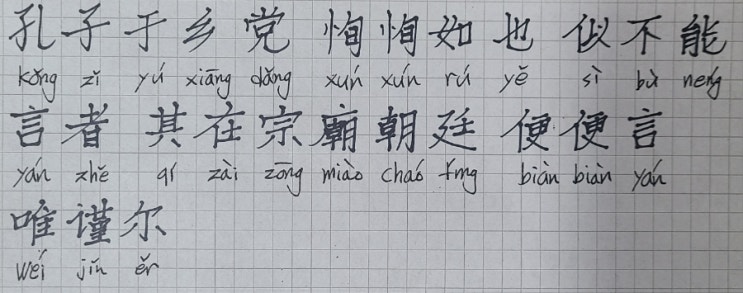 孔子于乡党 恂恂如也 似不能
kǒng zǐ yú xiāng dǎng xún xún rú yě sì bù néng
言者 其在宗廟朝廷 便便言
yán zhě qí zài zōng miào cháo tíng biàn biàn yán
唯谨尔
wéi jǐn ěr